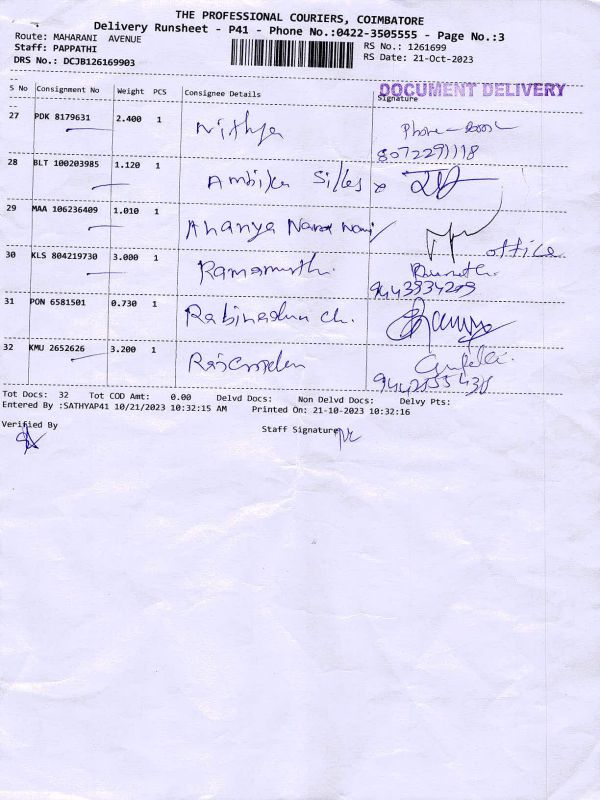 THE PROFESSIONAL COURIERS, COIMBATORE
Delivery Runsheet - P41 - Phone No.:0422-3505555 - Page No.:3
Route: MAHARANI AVENUE
RS No.: 1261699
Staff: PAPPATHI
RS Date: 21-Oct-2023
DRS No.: DCJB126169903
DOCUMENT DELIVERY
S No Consignment No Weight PCS Consignee Details Signature
27 PDK 8179631 2.400 1 Nithya
8072291118
28 BLT 100203985 1.120 1 Ambika
29 MAA 106236409 1.010 1 Ahanya
office
30 KLS 804219730 3.000 1
31 PON 6581501 0.730 1
32 KMU 2652626 3.200 1
Tot Docs: 32 Tot COD Amt: 0.00 Delvd Docs: Non Delvd Docs: Delvy Pts:
Entered By :SATHYAP41 10/21/2023 10:32:15 AM Printed On: 21-10-2023 10:32:16
Verified By
Staff Signature